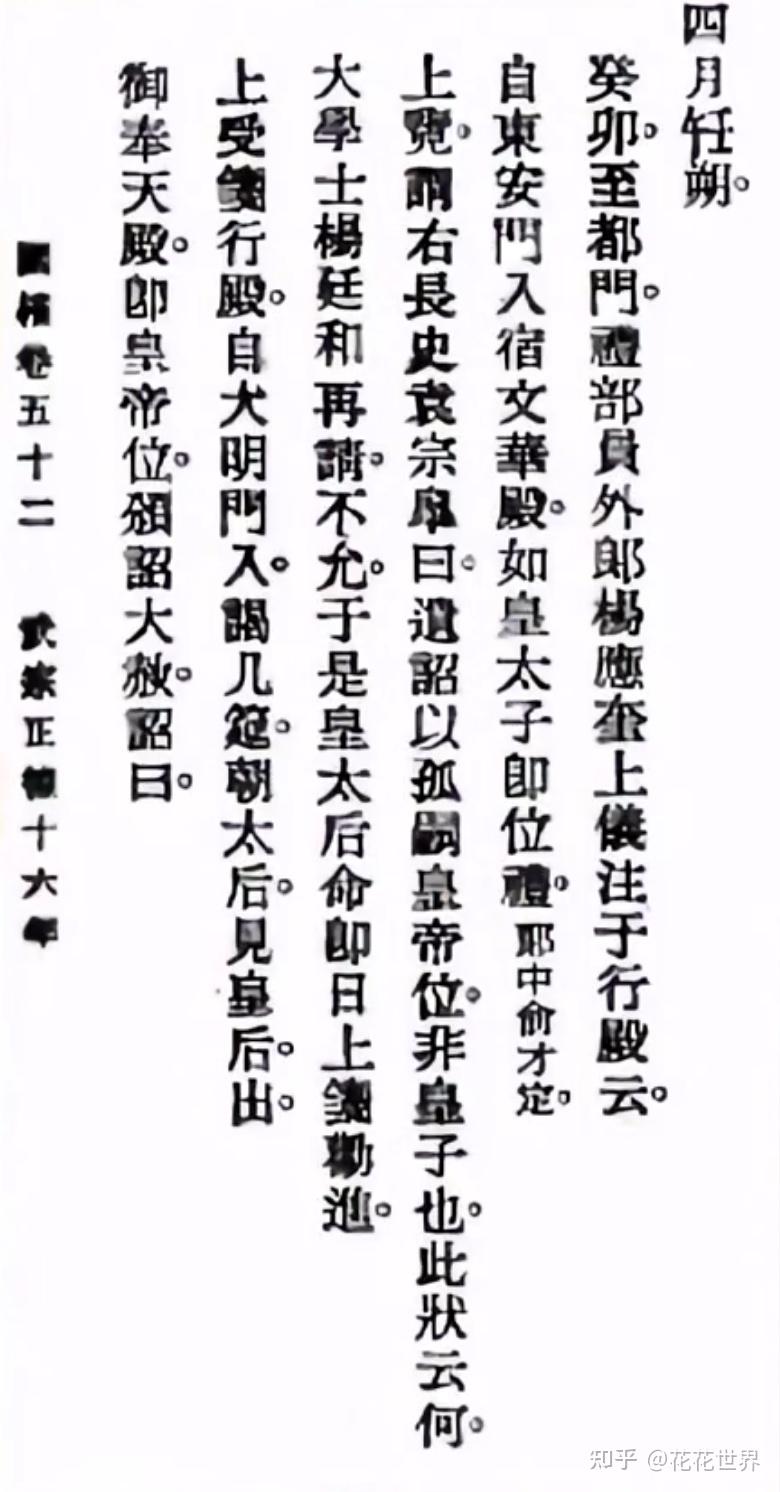 四月任朔。
癸卯。至都門。禮部員外郎楊應奎上儀注于行殿云。
自東安門入宿文華殿。如皇太子卽位禮。郎中俞才定。
上覽。謂右長史袁宗皐曰。遺詔以孤嗣皇帝位。非皇子也。此狀云何。
大學士楊廷和再請。不允。于是皇太后命卽日上箋勸進。
上受箋行殿。自大明門入。謁几筵。朝太后。見皇后。出。
御奉天殿。卽皇帝位。頒詔大赦。詔曰。
國榷卷五十二 武宗正德十六年
知乎 @花花世界